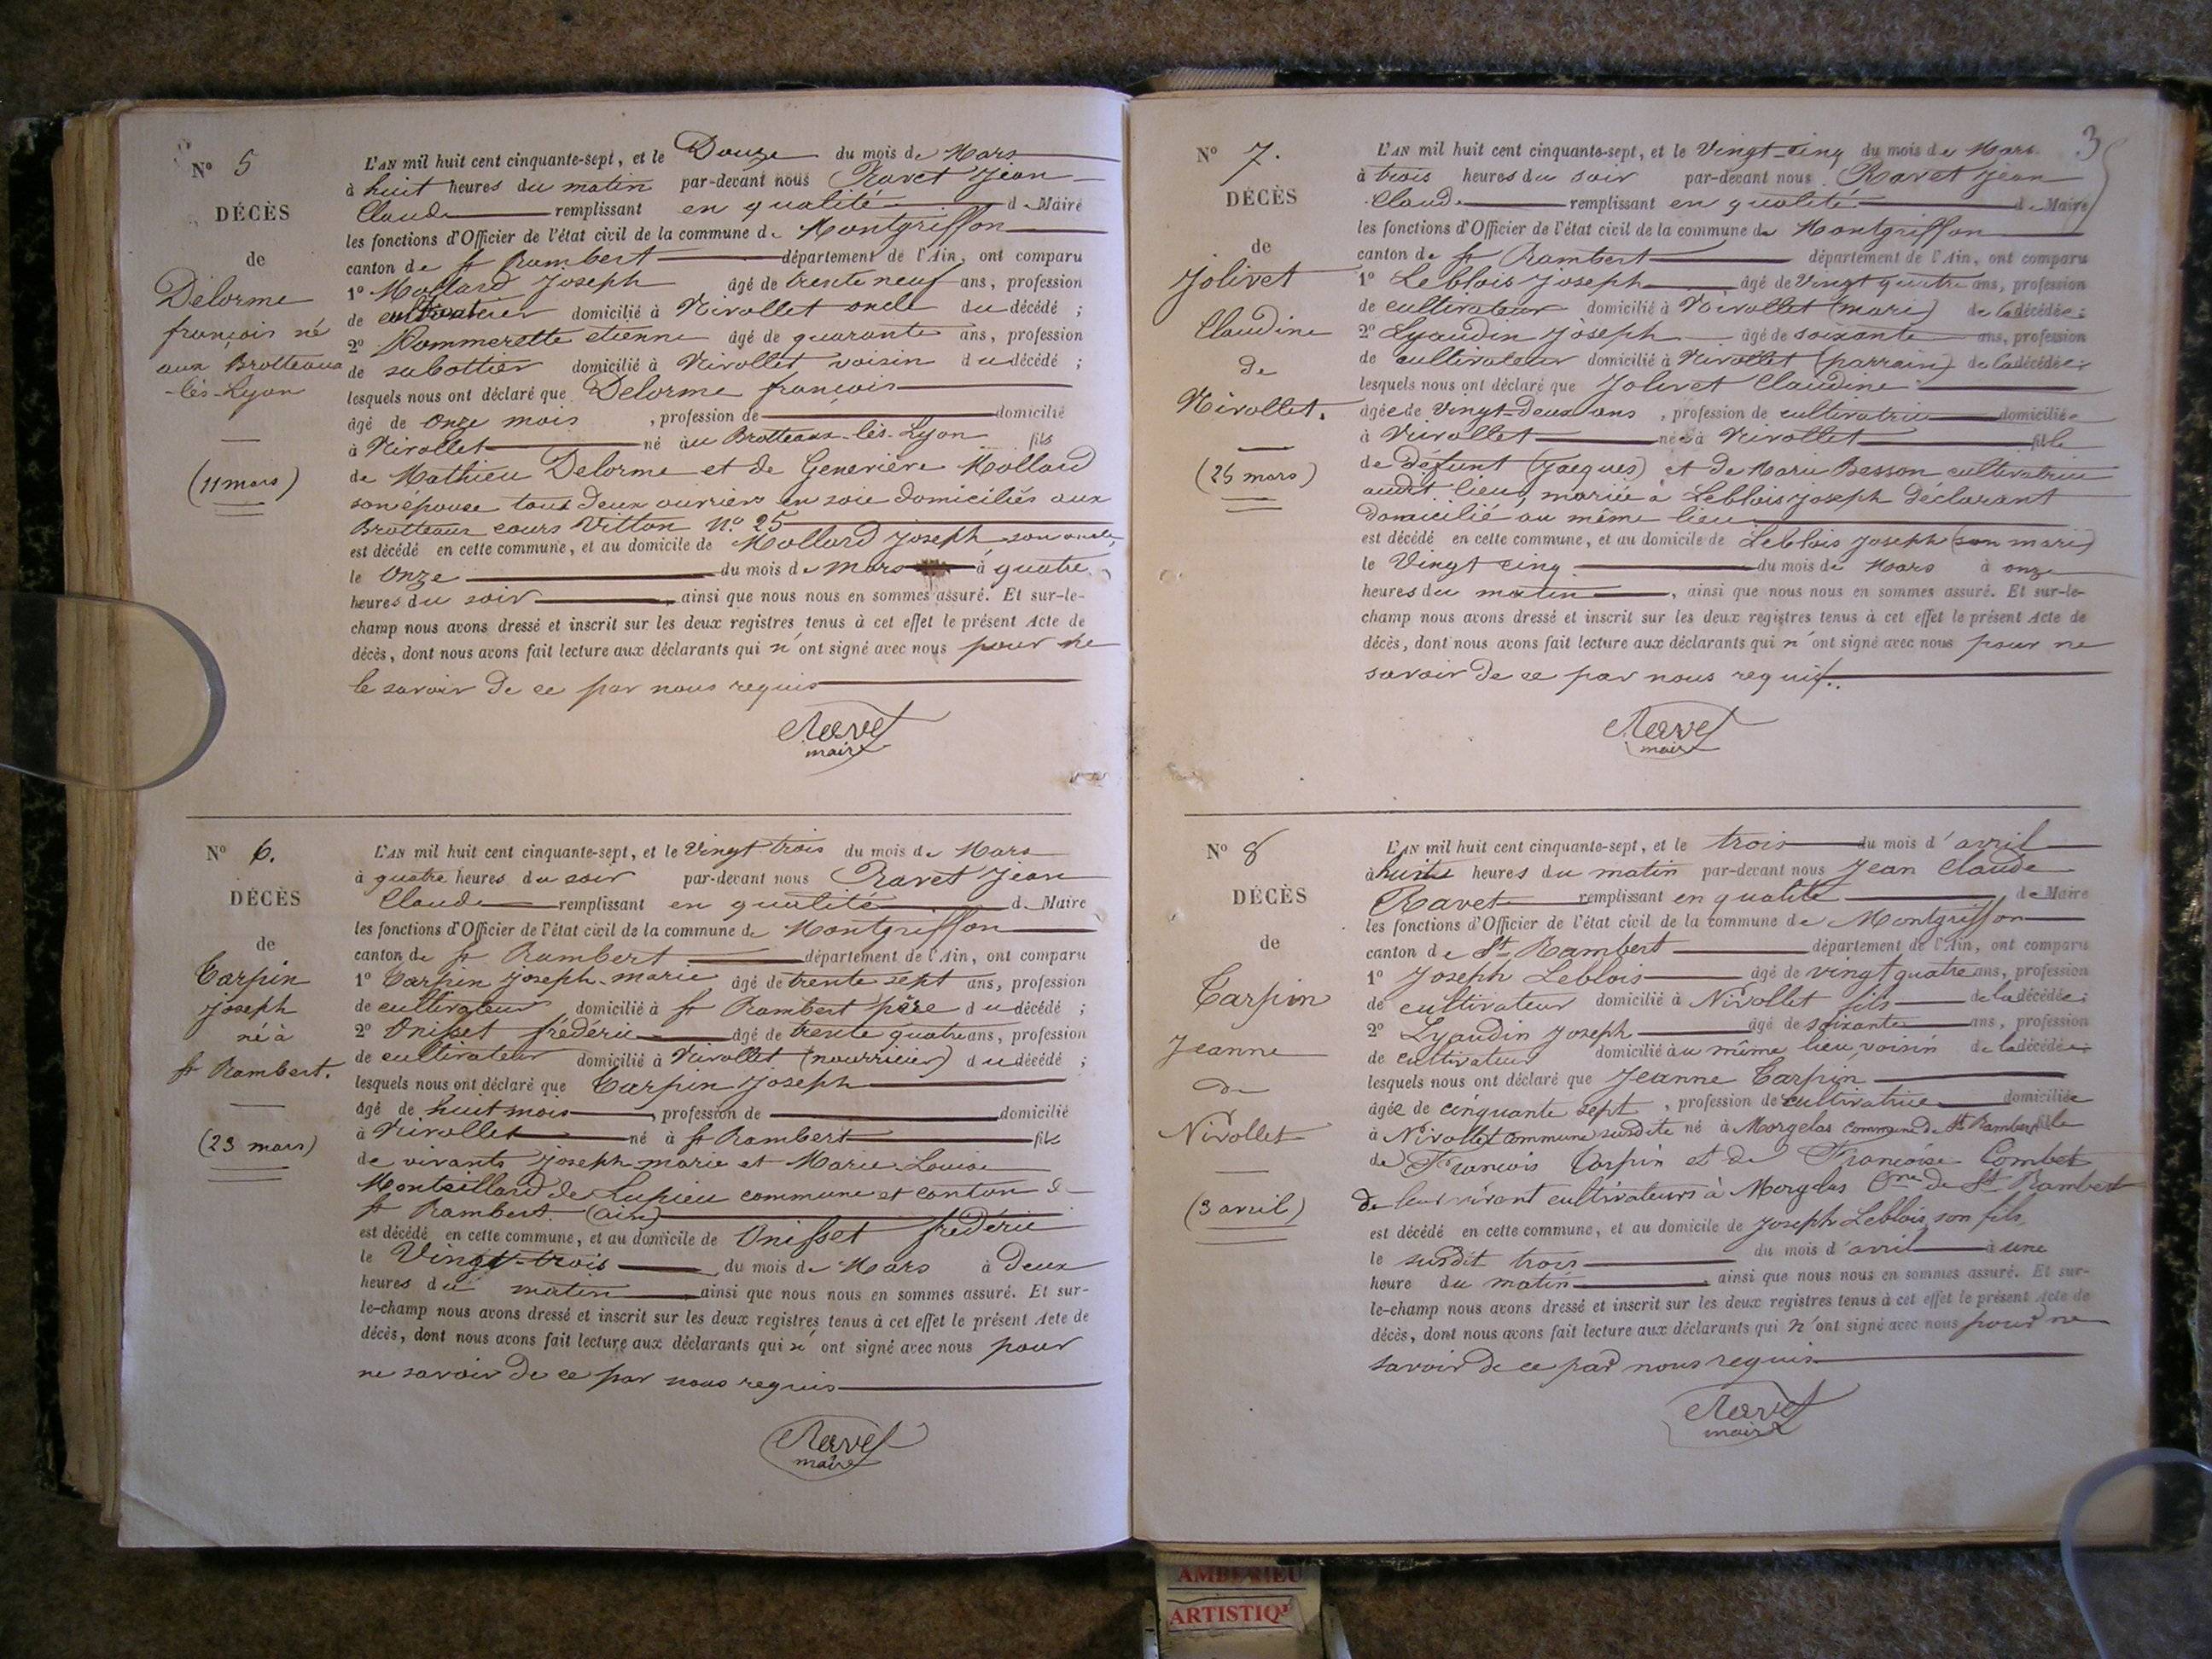 Nº 5
DÉCÈS
de
Delorme
françois né
aux Brotteaux
-lès-Lyon
(11 mars)
L'AN mil huit cent cinquante-sept, et le Douze du mois de Mars
à huit heures du matin par-devant nous Ravet Jean
Claude remplissant en qualité de Maire
les fonctions d'Officier de l'état civil de la commune de Montgriffon
canton de St Rambert département de l'Ain, ont comparu
1º Mollard Joseph âgé de trente neuf ans, profession
de cultivateur domicilié à Nivollet oncle du décédé ;
2º Pommerette etienne âgé de quarante ans, profession
de sabottier domicilié à Nivollet voisin du décédé ;
lesquels nous ont déclaré que Delorme françois
âgé de onze mois , profession de domicilié
à Nivollet né au Brotteaux-lès-Lyon fils
de Mathieu Delorme et de Geneviève Mollard
son épouse tout deux ouvriers en soie domiciliés aux
Brotteaux cours Vitton Nº 25
est décédé en cette commune, et au domicile de Mollard Joseph son oncle,
le Onze du mois de Mars à quatre
heures du soir , ainsi que nous nous en sommes assuré. Et sur-le-
champ nous avons dressé et inscrit sur les deux registres tenus à cet effet le présent Acte de
décès, dont nous avons fait lecture aux déclarants qui n'ont signé avec nous pour ne
le savoir de ce par nous requis
Ravet
maire
Nº 6.
DÉCÈS
de
Carpin
Joseph
né à
St Rambert.
(23 mars)
L'AN mil huit cent cinquante-sept, et le Vingt-trois du mois de Mars
à quatre heures du soir par-devant nous Ravet Jean
Claude remplissant en qualité de Maire
les fonctions d'Officier de l'état civil de la commune de Montgriffon
canton de St Rambert département de l'Ain, ont comparu
1º Carpin Joseph-marie âgé de trente sept ans, profession
de cultivateur domicilié à St Rambert père du décédé ;
2º Onisset frédéric âgé de trente quatre ans, profession
de cultivateur domicilié à Nivollet (nourricier) du décédé ;
lesquels nous ont déclaré que Carpin Joseph
âgé de huit mois , profession de domicilié
à Nivollet né à St Rambert fils
de vivants Joseph-marie et Marie Louise
Monteillard de Lupieu commune et canton de
St Rambert (ain)
est décédé en cette commune, et au domicile de Onisset frédéric
le Vingt-trois du mois de Mars à deux
heures du matin , ainsi que nous nous en sommes assuré. Et sur-
le-champ nous avons dressé et inscrit sur les deux registres tenus à cet effet le présent Acte de
décès, dont nous avons fait lecture aux déclarants qui n'ont signé avec nous pour
ne savoir de ce par nous requis
Ravet
maire
3
Nº 7.
DÉCÈS
de
Jolivet
Claudine
de
Nivollet.
(25 mars)
L'AN mil huit cent cinquante-sept, et le Vingt-cinq du mois de Mars
à trois heures du soir par-devant nous Ravet Jean
Claude remplissant en qualité de Maire
les fonctions d'Officier de l'état civil de la commune de Montgriffon
canton de St Rambert département de l'Ain, ont comparu
1º Leblois Joseph âgé de Vingt quatre ans, profession
de cultivateur domicilié à Nivollet (mari) de la décédée ;
2º Lyaudin Joseph âgé de soixante ans, profession
de cultivateur domicilié à Nivollet (parrain) de la décédée ;
lesquels nous ont déclaré que Jolivet Claudine
âgée de vingt-deux ans , profession de cultivatrice domiciliée
à Nivollet née à Nivollet fille
de défunt (Jacques) et de Marie Besson cultivatrice
audit lieu, mariée à Leblois Joseph déclarant
domicilié au même lieu
est décédé en cette commune, et au domicile de Leblois Joseph (son mari)
le Vingt cinq du mois de Mars à onze
heures du matin , ainsi que nous nous en sommes assuré. Et sur-le-
champ nous avons dressé et inscrit sur les deux registres tenus à cet effet le présent Acte de
décès, dont nous avons fait lecture aux déclarants qui n'ont signé avec nous pour ne
savoir de ce par nous requis.
Ravet
maire
Nº 8
DÉCÈS
de
Carpin
Jeanne
de
Nivollet
(3 avril)
L'AN mil huit cent cinquante-sept, et le trois du mois d'avril
à huit heures du matin par-devant nous Jean Claude
Ravet remplissant en qualité de Maire
les fonctions d'Officier de l'état civil de la commune de Montgriffon
canton de St Rambert département de l'Ain, ont comparu
1º Joseph Leblois âgé de vingt quatre ans, profession
de cultivateur domicilié à Nivollet fils de la décédée ;
2º Lyaudin Joseph âgé de soixante ans, profession
de cultivateur domicilié au même lieu, voisin de la décédée ;
lesquels nous ont déclaré que Jeanne Carpin
âgée de cinquante sept , profession de cultivatrice domiciliée
à Nivollet commune susdite né à Morgelas commune de St Rambert fille
de François Carpin et de Françoise Combet
de leur vivant cultivateurs à Morgelas Cne de St Rambert
est décédé en cette commune, et au domicile de Joseph Leblois, son fils,
le susdit trois du mois d'avril à une
heure du matin , ainsi que nous nous en sommes assuré. Et sur-
le-champ nous avons dressé et inscrit sur les deux registres tenus à cet effet le présent Acte de
décès, dont nous avons fait lecture aux déclarants qui n'ont signé avec nous pour ne
savoir de ce par nous requis
Ravet
maire
AMBERIEU
ARTISTIQ